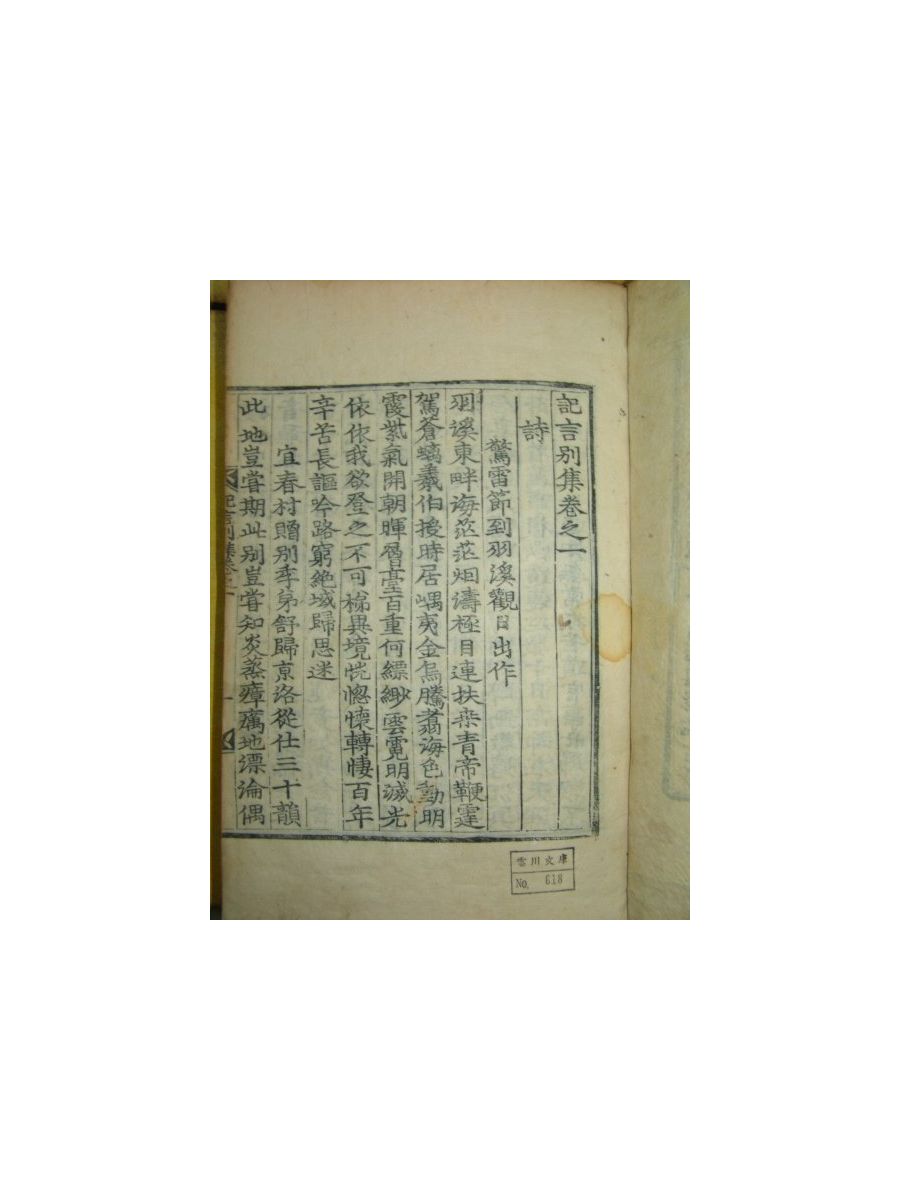 記言別集卷之一
詩
驚雷節到羽溪觀日出作
羽溪東畔海茫茫烟濤極目連扶桒青帝鞭霆
駕蒼螭羲伯授時居嵎夷金烏騰翥海色動明
霞紫氣開朝暉層臺百重何縹緲雲霓明滅光
依依我欲登之不可梯異境恍惚懷轉悽百年
辛苦長謳吟路窮絶域歸思迷
宜春村贈別季弟舒歸京洛從仕三十韻
此地豈嘗期此別豈嘗知炎蒸瘴癘地漂淪偶
記言別集卷之一
一
雲川文庫
No. 618